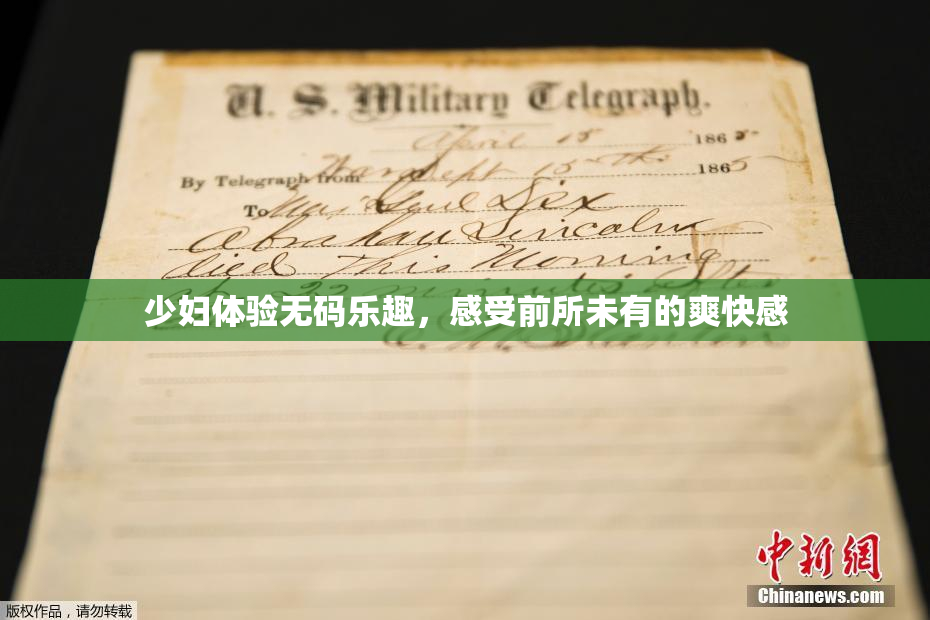 U. S. Military Telegraph.
April 15 1865
By Telegraph from War Dept 15th 1865
To Maj Genl Dix
Abraham Lincoln
died This Morning
22 minutes after
少妇体验无码乐趣，感受前所未有的爽快感
中新网
Chinanews.com
版权作品，请勿转载